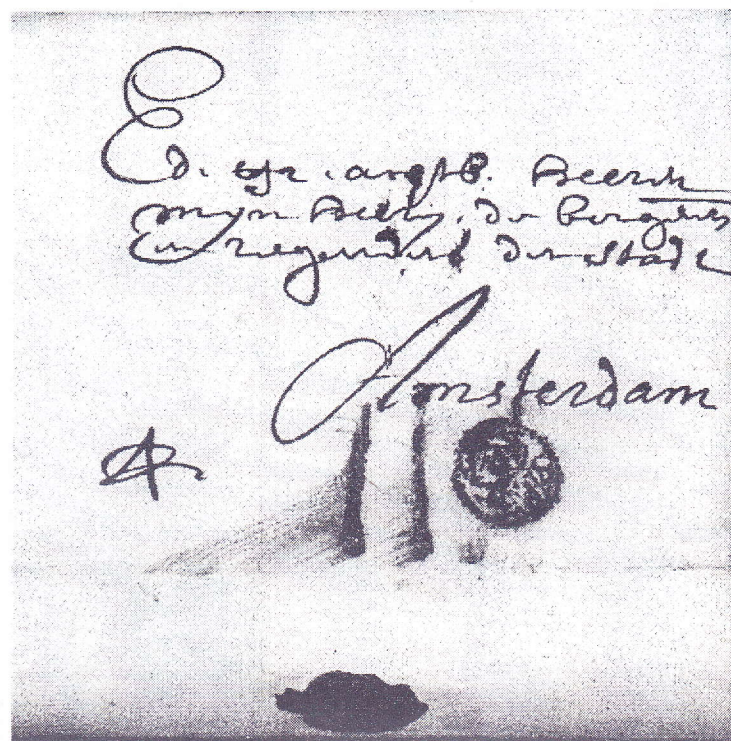 Ed. agtb. heeren
mijn heeren, de borgem
en regeerders der stadt
Amsterdam